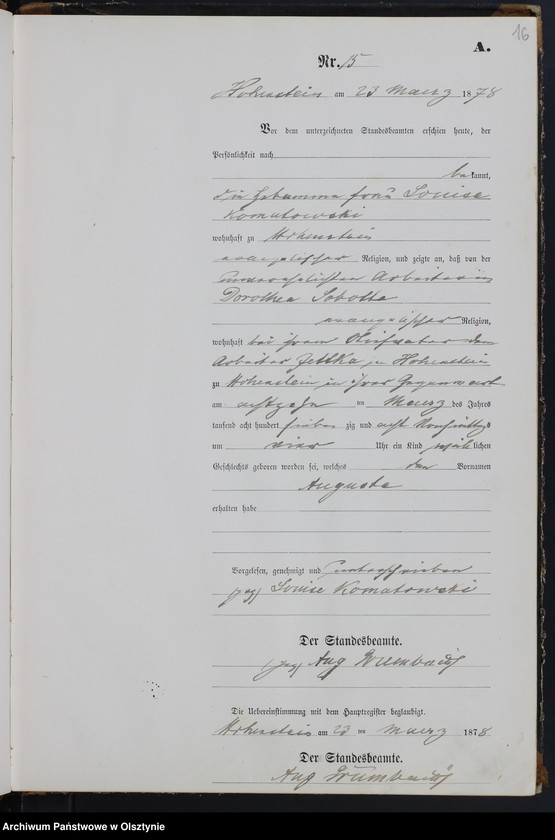 16
A.
Nr. 15
Hohenstein am 23 Maerz 1878
Vor dem unterzeichneten Standesbeamten erschien heute, der
Persönlichkeit nach
bekannt,
die Hebamme Frau Louise
Komatowski
wohnhaft zu Hohenstein
evangelischer Religion, und zeigte an, daß von der
unverehelichten Arbeiterin
Dorothea Sobotta
evangelischer Religion,
wohnhaft bei ihrem Stiefvater dem
Arbeiter Jettka in Hohenstein
zu Hohenstein in ihrer Gegenwart
am achtzehn ten Maerz des Jahres
tausend acht hundert sieben zig und acht Vormittags
um vier Uhr ein Kind weiblichen
Geschlechts geboren worden sei, welches den Vornamen
Auguste
erhalten habe
Vorgelesen, genehmigt und unterschrieben
gez) Louise Komatowski
Der Standesbeamte.
(gez) Aug Grumbach
Die Uebereinstimmung mit dem Hauptregister beglaubigt.
Hohenstein am 23 ten Maerz 1878
Der Standesbeamte.
Aug Grumbach
Archiwum Państwowe w Olsztynie